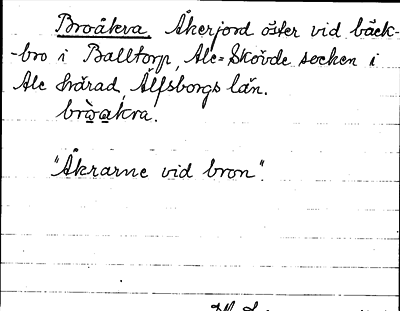 Broåkra Åkerjord öster vid bäck-
-bro i Balltorp, Ale-Skövde socken i
Ale härad, Älfsborgs län.
bròakra.
"Åkrarne vid bron".